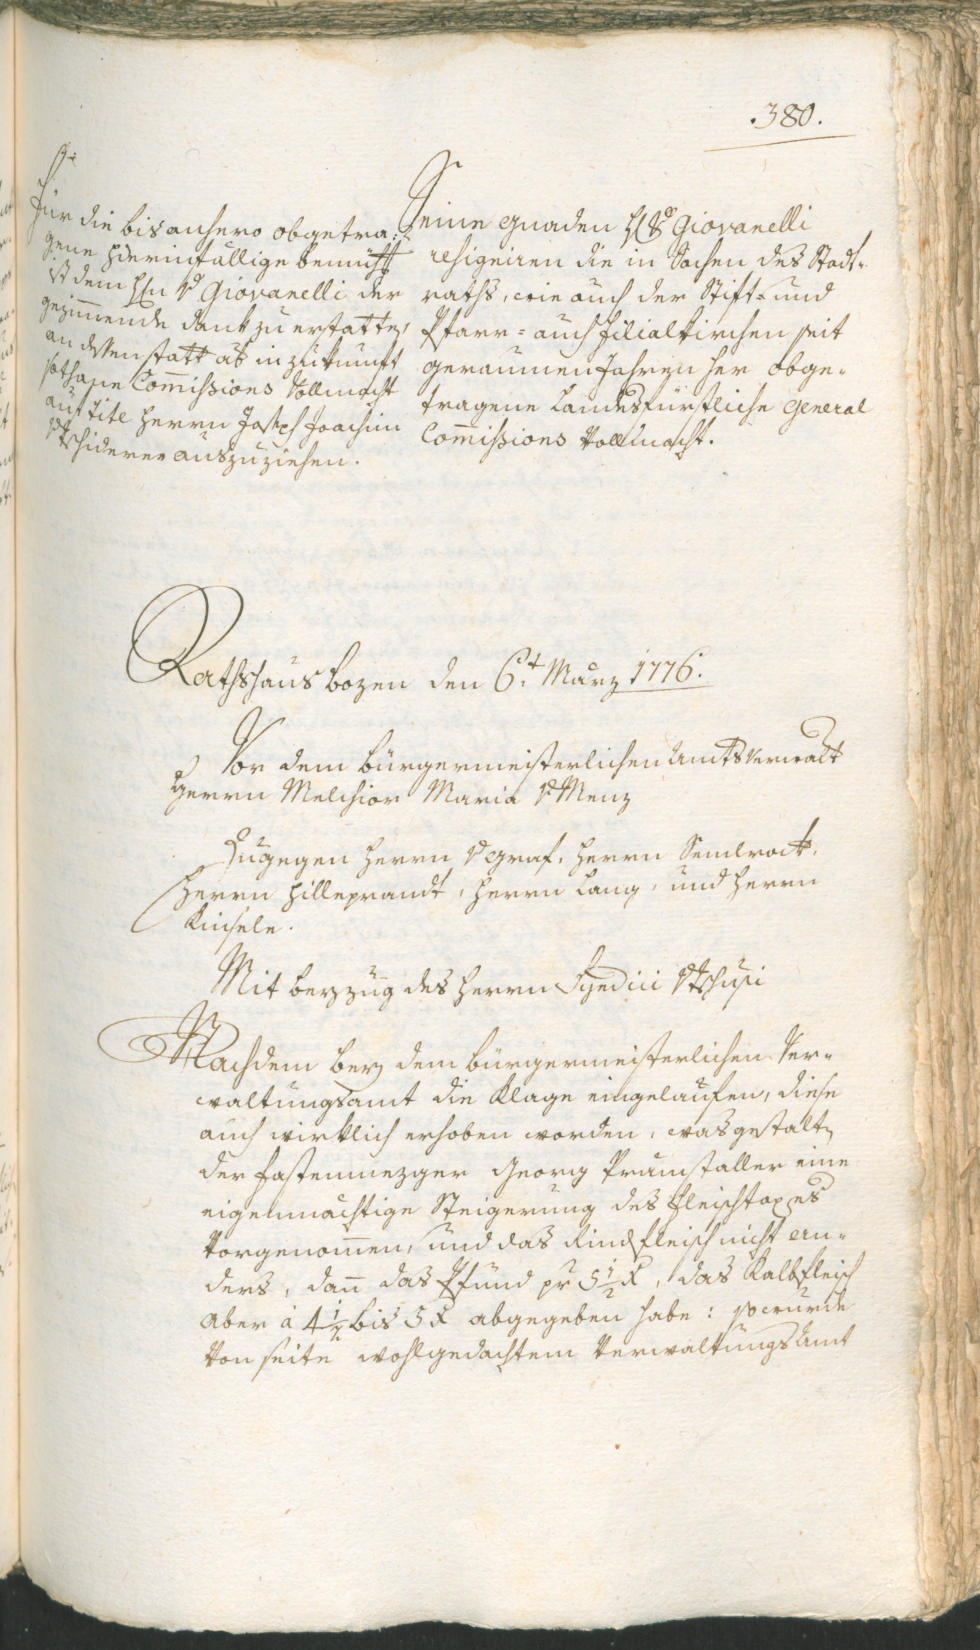 .380.
Für die bis anhero obgetra-
gene hiereinfällige bemüh
ist dem H v Giovanelli der
gezimmende dank zu erstatten,
an dessen statt ab in zukunft
sothane Commissions Vollmacht
auf Titl Herrn Joseph Joachim
v Tschiderer auszuziehen.
Seine Gnaden H v Giovanelli
resigniren die in Sachen des Stadt-
raths, wie auch der Stift- und
Pfarr- auch Filialkirchen seit
geraumen Jahren her obge-
tragene Landesfürstliche General
Commissions Vollmacht.
Rathshaus Bozen den 6.t März 1776.
Vor dem bürgermeisterlichen Amts Verwalt
Herrn Melchior Maria v Menz
Zugegen Herrn v Graf, Herrn Semlrock,
Herrn Hilleprandt, Herrn Lang, und Herrn
Kinsele.
Mit beyzug des Herrn Syndici v Tschusi
Nachdem bey dem bürgermeisterlichen Ver-
waltungsamt die Klage eingelaufen, diese
auch wirklich erhoben worden, was gestalten
der fastenmezger Georg Pramstaller eine
eigenmächtige Steigerung des Fleischtaxes
vorgenommen, und das Rindfleisch nicht an-
ders, dann das Pfund pr 5 1/2 x, das Kalbfleisch
aber à 4 1/2 bis 5 x abgegeben habe: so wurde
von seite wohlgedachtem Verwaltungs Amt